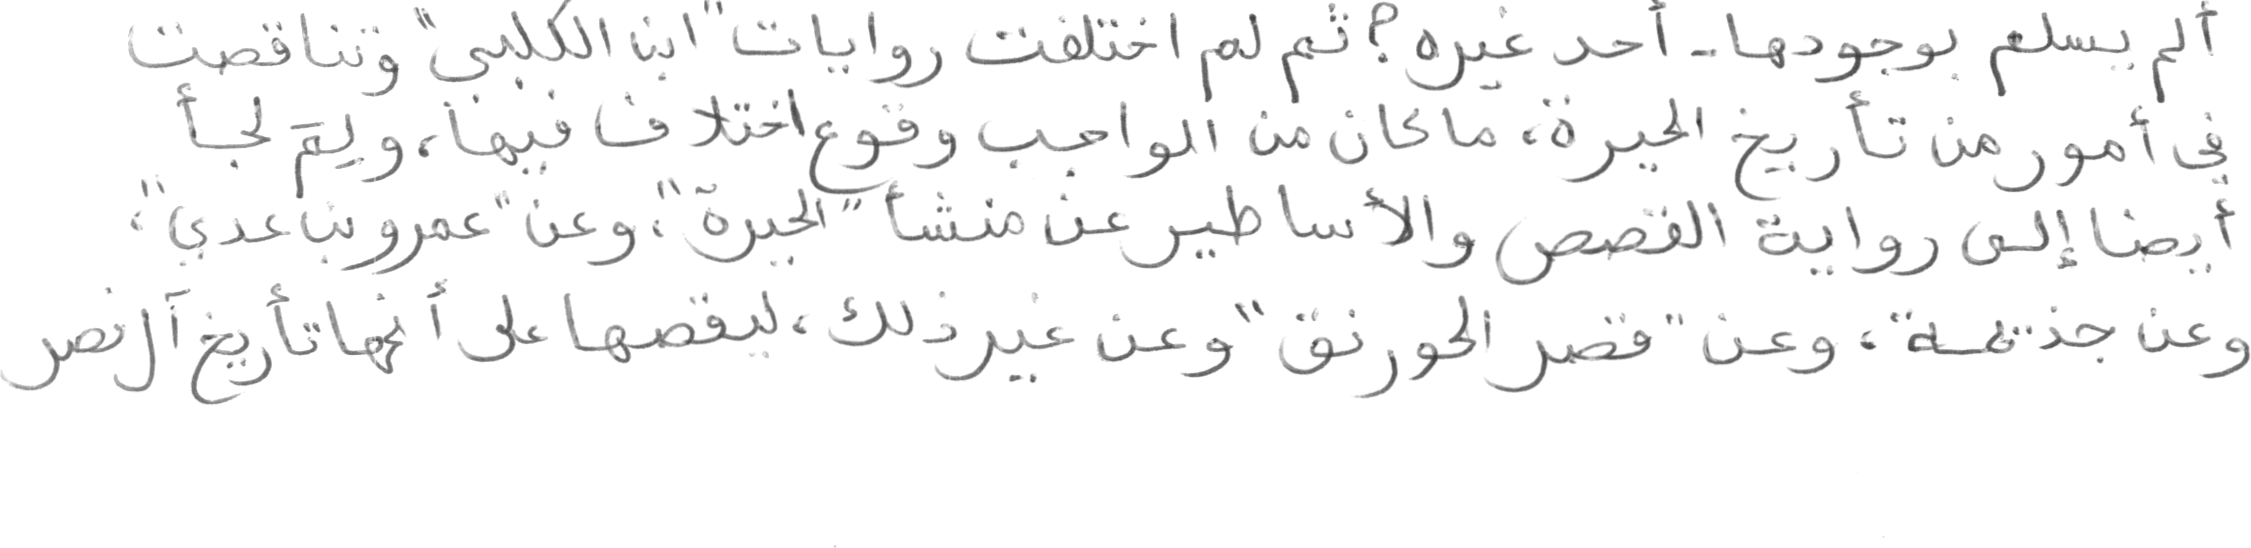 ألم يسلم بوجودها - أحد غيره؟ ثم لم اختلفت روايات "ابن الكلبي" وتناقصت
في أمور من تأريخ الحيرة، ما كان من الواجب وقوع اختلاف فيها، ولِمَ لجأ
أيضا إلى رواية القصص والأساطير عن منشأ "الحيرة"، وعن "عمرو بن عدي"،
وعن جذيمة"، وعن "قصر الخورنق" وعن غير ذلك، ليقصها على أنها تأريخ آل نصر